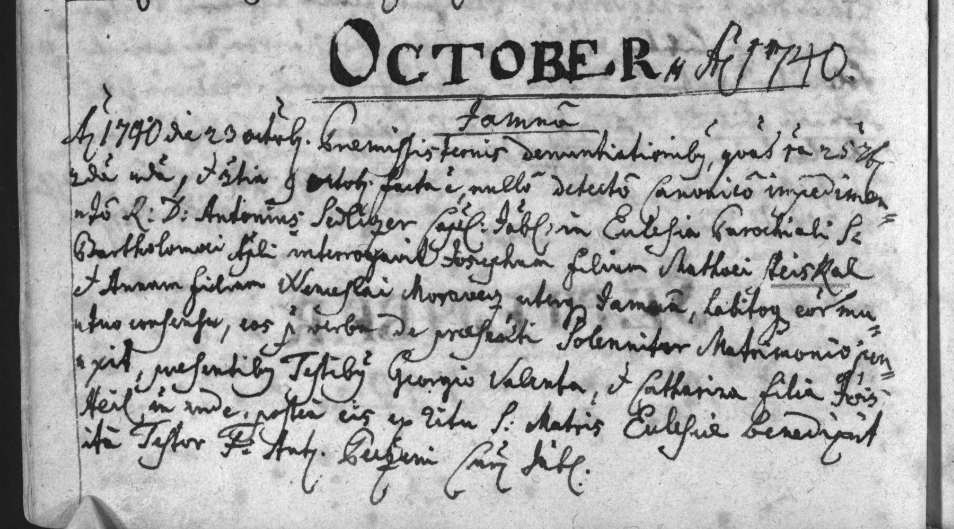 OCTOBER A 1740.
Jamnã
A 1740 die 23 octob. Premissis ternis denuntiationibq, quas 1a 25 7b
2da 2da, & 3tia 9 octob. facta ẽ, nullõ detectõ Canonicõ impedimen=
ntõ R: D: Antonius Sedliczer Capel: Jabl: in Eclesia Parochiali S:
Bartholomei Apli interrogavit Josephum filium Mathaei Peiskal
& Annam filiam Wenceslai Moravecz uterq Jamnã, habitoq eor mu=
utuo consensu, eos p verba de presenti Solenniter Matrimonio jun=
nxit, presentibq Testibq Georgio Valenta, & Catharina filia Jois
in unde, postea eis ex ritu S: Matris Eclesiae benedixit
ita Testor Ant. Jabl.